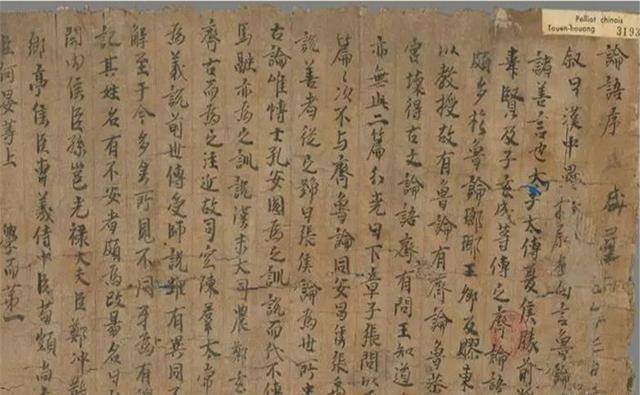 Pelliot chinois
Touen-houang
3193
論語序
叙曰漢中壘
諸善言也大子太傅夏侯勝前
韋賢及子玄成等傳之齊論語
頗多於魯論瑯耶王卿及膠東
以教授故有魯論有齊論魯恭
宮壞得古文論語齊有問王知道
亦無此二篇分堯曰下章子張問以
篇〻次不与齊魯論同安昌侯張禹
說善者從之號曰張侯論為世所
古論唯博士孔安國為之訓說而代不傳
馬融亦為之訓說漢末大司農鄭玄
齊古而為之注近故司空陳羣太常
為義說前世傳受師說雖有異同
解至于今多矣所見不同互為有
記其姓名有不安者頗為改易名曰
關內侯臣孫邕光禄大夫臣鄭沖散
鄉亭侯臣曹羲侍中臣荀顗尚
臣何晏等上 學而第一